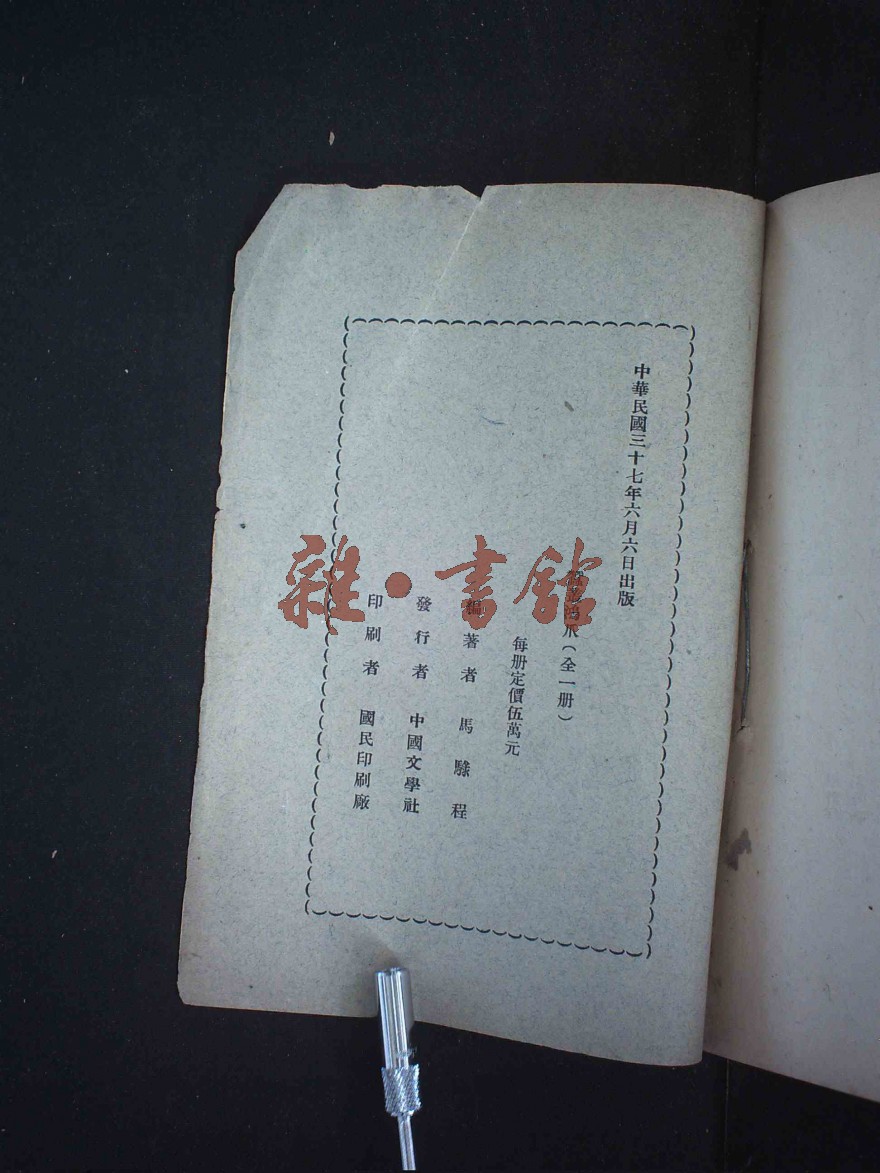 中華民國三十七年六月六日出版
叢鴻爪（全一册）
每册定價伍萬元
編著者　馬騄程
發行者　中國文學社
印刷者　國民印刷廠
雜·書館